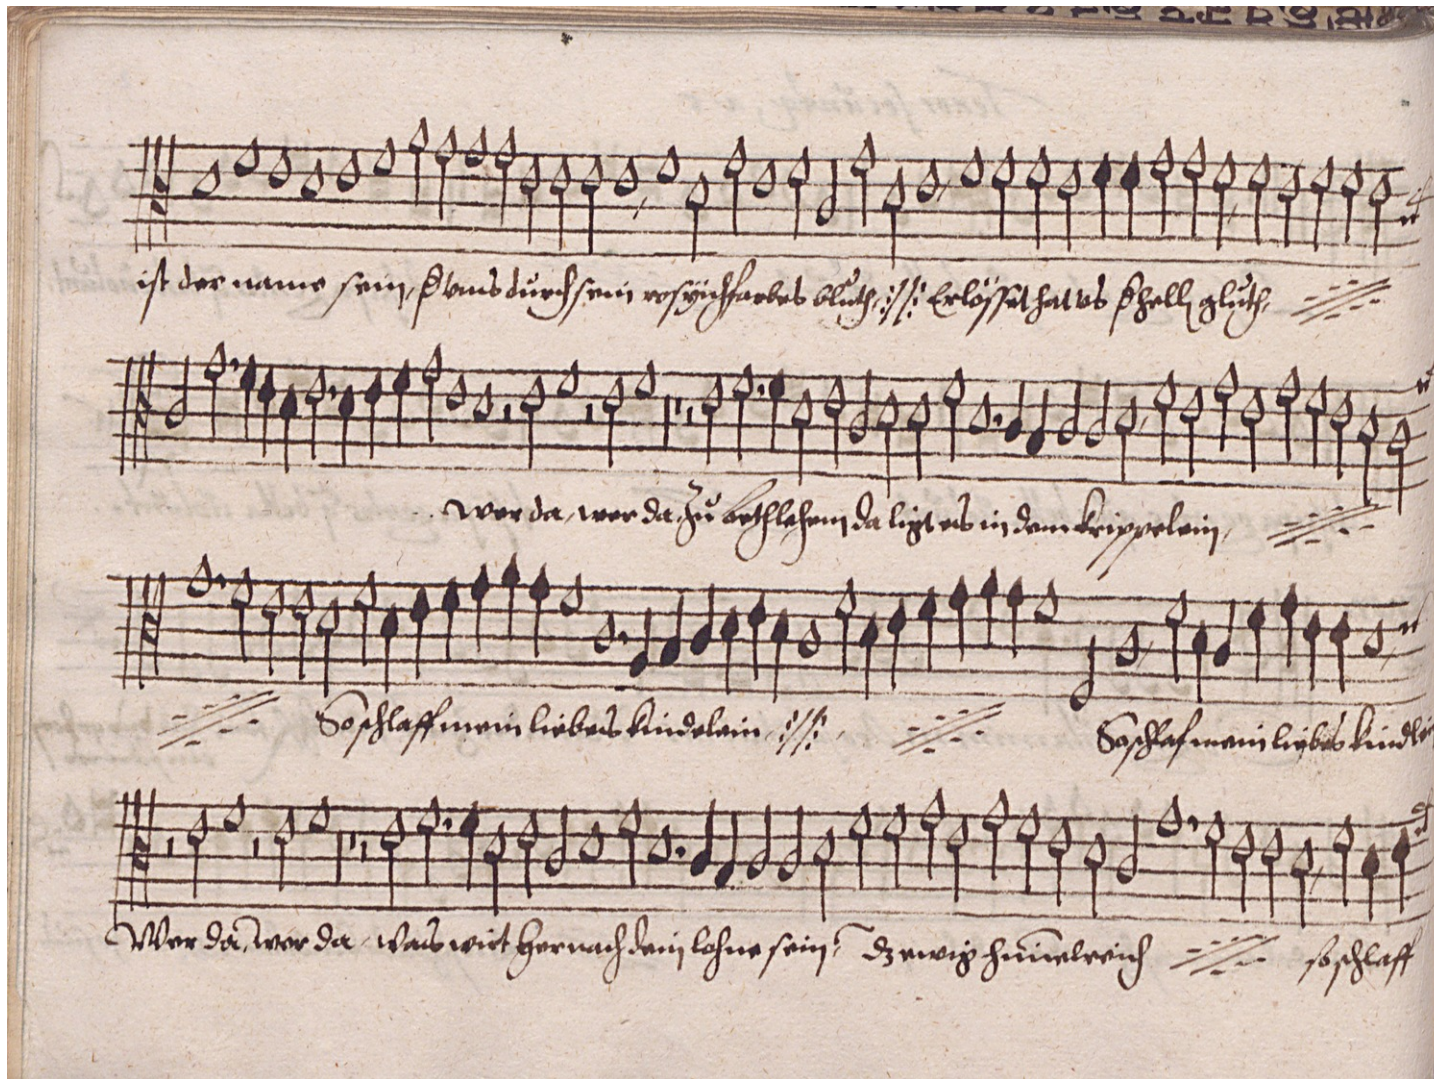 ist der name sein, d vns durch sein rosÿnfarbes bluth, :/: Erlösset hat vs d hell gluth,
wer da, wer da, Zu bethlehem da ligt eis in dem krippelein,
So schlaff mein liebes kindelein, :/: So schlaf mein liebes kindlein
Wer da, wer da, was wirt hernach dein lohne sein, dz ewig himelreich so schlaff